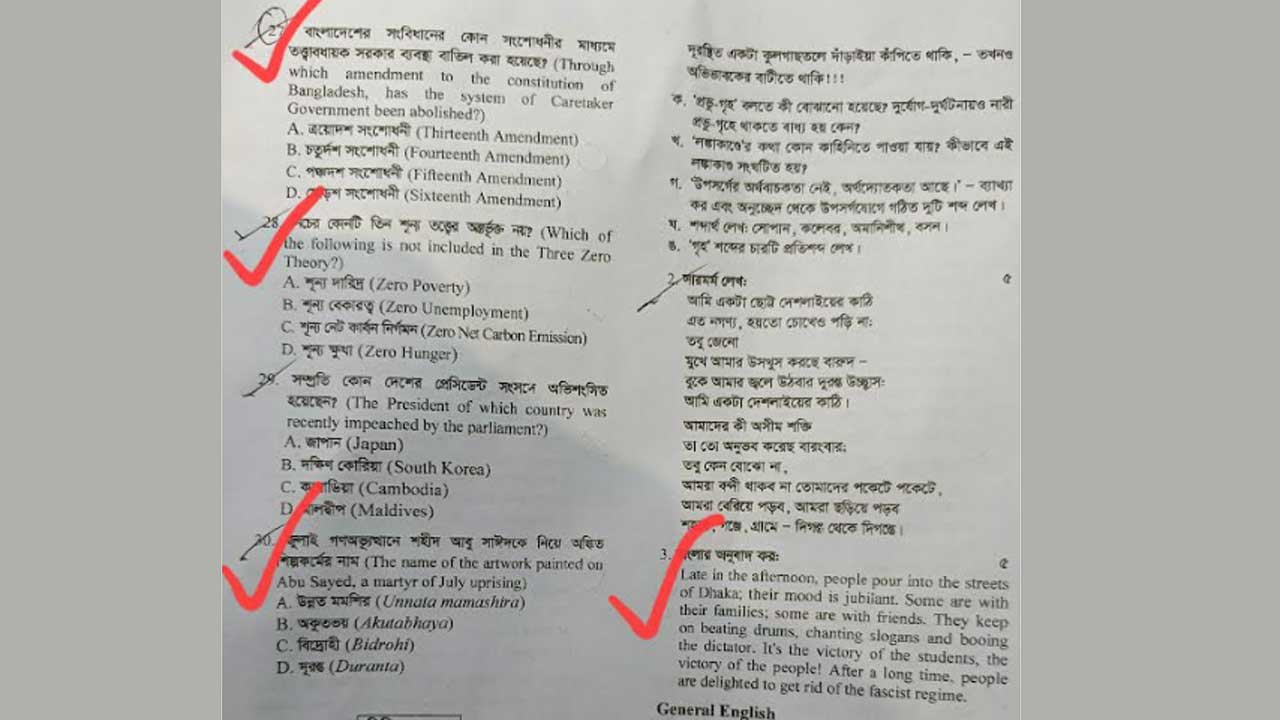 27. বাংলাদেশের সংবিধানের কোন সংশোধনীর মাধ্যমে
তত্ত্বাবধায়ক সরকার ব্যবস্থা বাতিল করা হয়েছে? (Through
which amendment to the constitution of
Bangladesh, has the system of Caretaker
Government been abolished?)
A. ত্রয়োদশ সংশোধনী (Thirteenth Amendment)
B. চতুর্দশ সংশোধনী (Fourteenth Amendment)
C. পঞ্চদশ সংশোধনী (Fifteenth Amendment)
D. ষোড়শ সংশোধনী (Sixteenth Amendment)
28. নিচের কোনটি তিন শূন্য তত্ত্বের অন্তর্ভুক্ত নয়? (Which of
the following is not included in the Three Zero
Theory?)
A. শূন্য দারিদ্র (Zero Poverty)
B. শূন্য বেকারত্ব (Zero Unemployment)
C. শূন্য নেট কার্বন নির্গমন (Zero Net Carbon Emission)
D. শূন্য ক্ষুধা (Zero Hunger)
29. সম্প্রতি কোন দেশের প্রেসিডেন্ট সংসদে অভিশংসিত
হয়েছেন? (The President of which country was
recently impeached by the parliament?)
A. জাপান (Japan)
B. দক্ষিণ কোরিয়া (South Korea)
C. কম্বোডিয়া (Cambodia)
D. মালদ্বীপ (Maldives)
30. জুলাই গণঅভ্যুত্থানে শহীদ আবু সাঈদকে নিয়ে অঙ্কিত
শিল্পকর্মের নাম (The name of the artwork painted on
Abu Sayed, a martyr of July uprising)
A. উন্নত মমশির (Unnata mamashira)
B. অকুতভয় (Akutabhaya)
C. বিদ্রোহী (Bidrohi)
D. দূরন্ত (Duranta)
দূরস্থিত একটা কুলগাছতলে দাঁড়াইয়া কাঁপিতে থাকি, – তখনও
অভিভাবকের বাটীতে থাকি!!!
ক. 'প্রভু-গৃহ' বলতে কী বোঝানো হয়েছে? দুর্যোগ-দুর্ঘটনায়ও নারী
প্রভু-গৃহে থাকতে বাধ্য হয় কেন?
খ. 'লঙ্কাকাণ্ডে'র কথা কোন কাহিনিতে পাওয়া যায়? কীভাবে এই
লঙ্কাকাণ্ড সংঘটিত হয়?
গ. 'উপসর্গের অর্থবাচকতা নেই, অর্থদ্যোতকতা আছে।' – ব্যাখ্যা
কর এবং অনুচ্ছেদ থেকে উপসর্গযোগে গঠিত দুটি শব্দ লেখ।
ঘ. শব্দার্থ লেখ: সোপান, কলেবর, অমানিশীথ, বসন।
ঙ. 'গৃহ' শব্দের চারটি প্রতিশব্দ লেখ।
2. সারমর্ম লেখ: ৫
আমি একটা ছোট্ট দেশলাইয়ের কাঠি
এত নগণ্য, হয়তো চোখেও পড়ি না:
তবু জেনো
মুখে আমার উসখুস করছে বারুদ –
বুকে আমার জ্বলে উঠবার দুরন্ত উচ্ছ্বাস:
আমি একটা দেশলাইয়ের কাঠি।
আমাদের কী অসীম শক্তি
তা তো অনুভব করেছ বারংবার;
তবু কেন বোঝো না,
আমরা বন্দী থাকব না তোমাদের পকেটে পকেটে,
আমরা বেরিয়ে পড়ব, আমরা ছড়িয়ে পড়ব
শহরে, গঞ্জে, গ্রামে – দিগন্ত থেকে দিগন্তে।
3. বাংলায় অনুবাদ কর: ৫
Late in the afternoon, people pour into the streets
of Dhaka; their mood is jubilant. Some are with
their families; some are with friends. They keep
on beating drums, chanting slogans and booing
the dictator. It's the victory of the students, the
victory of the people! After a long time, people
are delighted to get rid of the fascist regime.
General English